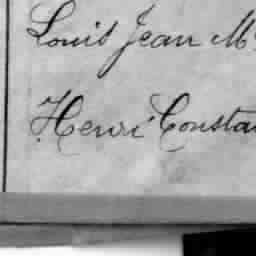 Louis Jean M
Henri Consta